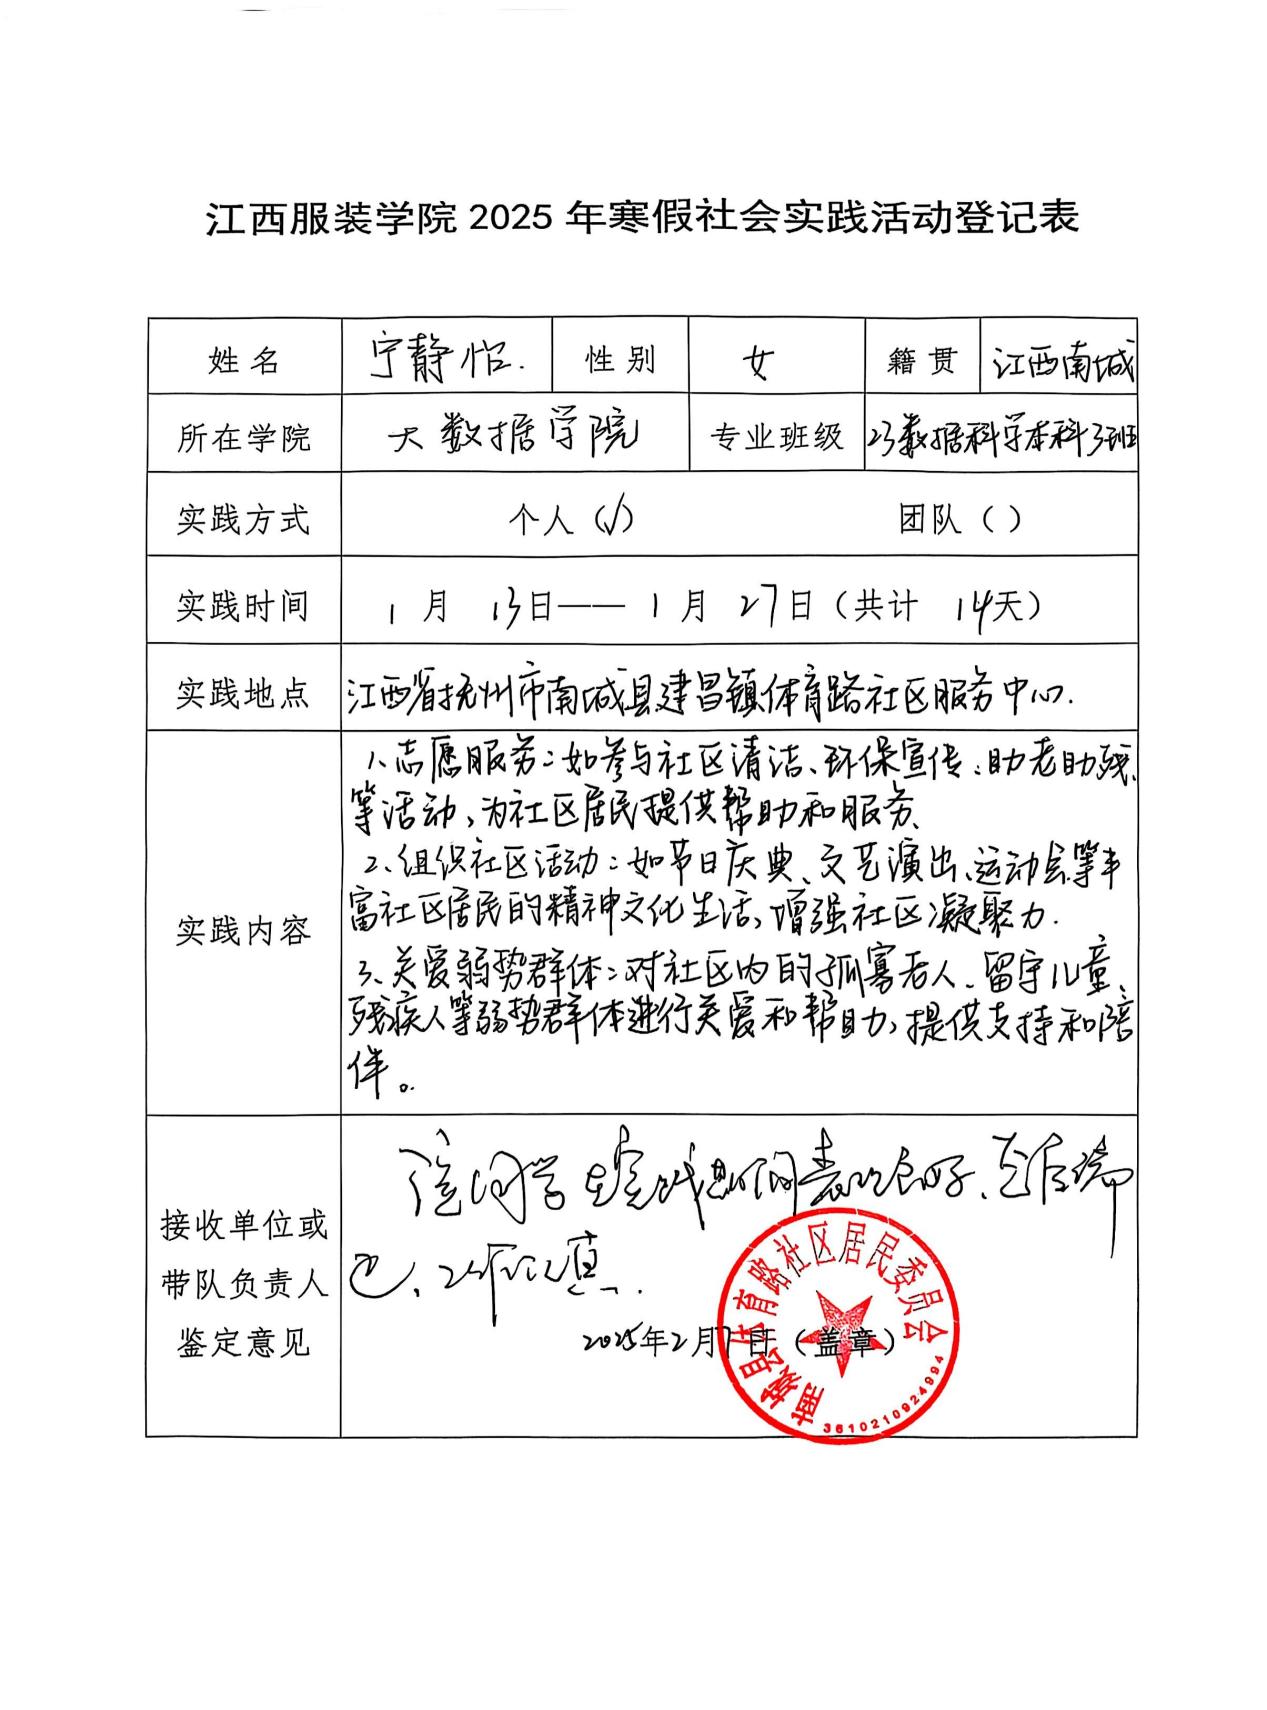 江西服装学院 2025 年寒假社会实践活动登记表
姓 名 宁静怡. 性 别 女 籍 贯 江西南城
所在学院 大数据学院 专业班级 23数据科学本科3班
实践方式 个人（√） 团队（ ）
实践时间 1 月 13日—— 1 月 27日（共计 14天）
实践地点 江西省抚州市南城县建昌镇体育路社区服务中心.
实践内容
1、志愿服务：如参与社区清洁、环保宣传、助老助残、
等活动，为社区居民提供帮助和服务、
2、组织社区活动：如节日庆典、文艺演出、运动会等丰
富社区居民的精神文化生活，增强社区凝聚力.
3、关爱弱势群体：对社区内的孤寡老人、留守儿童、
残疾人等弱势群体进行关爱和帮助，提供支持和陪
伴。
接收单位或
带队负责人
鉴定意见
该同学在实践期间表现良好、态度端
正、工作认真.
2025年2月7日（盖章）
南城县体育路社区居民委员会
3610210924994